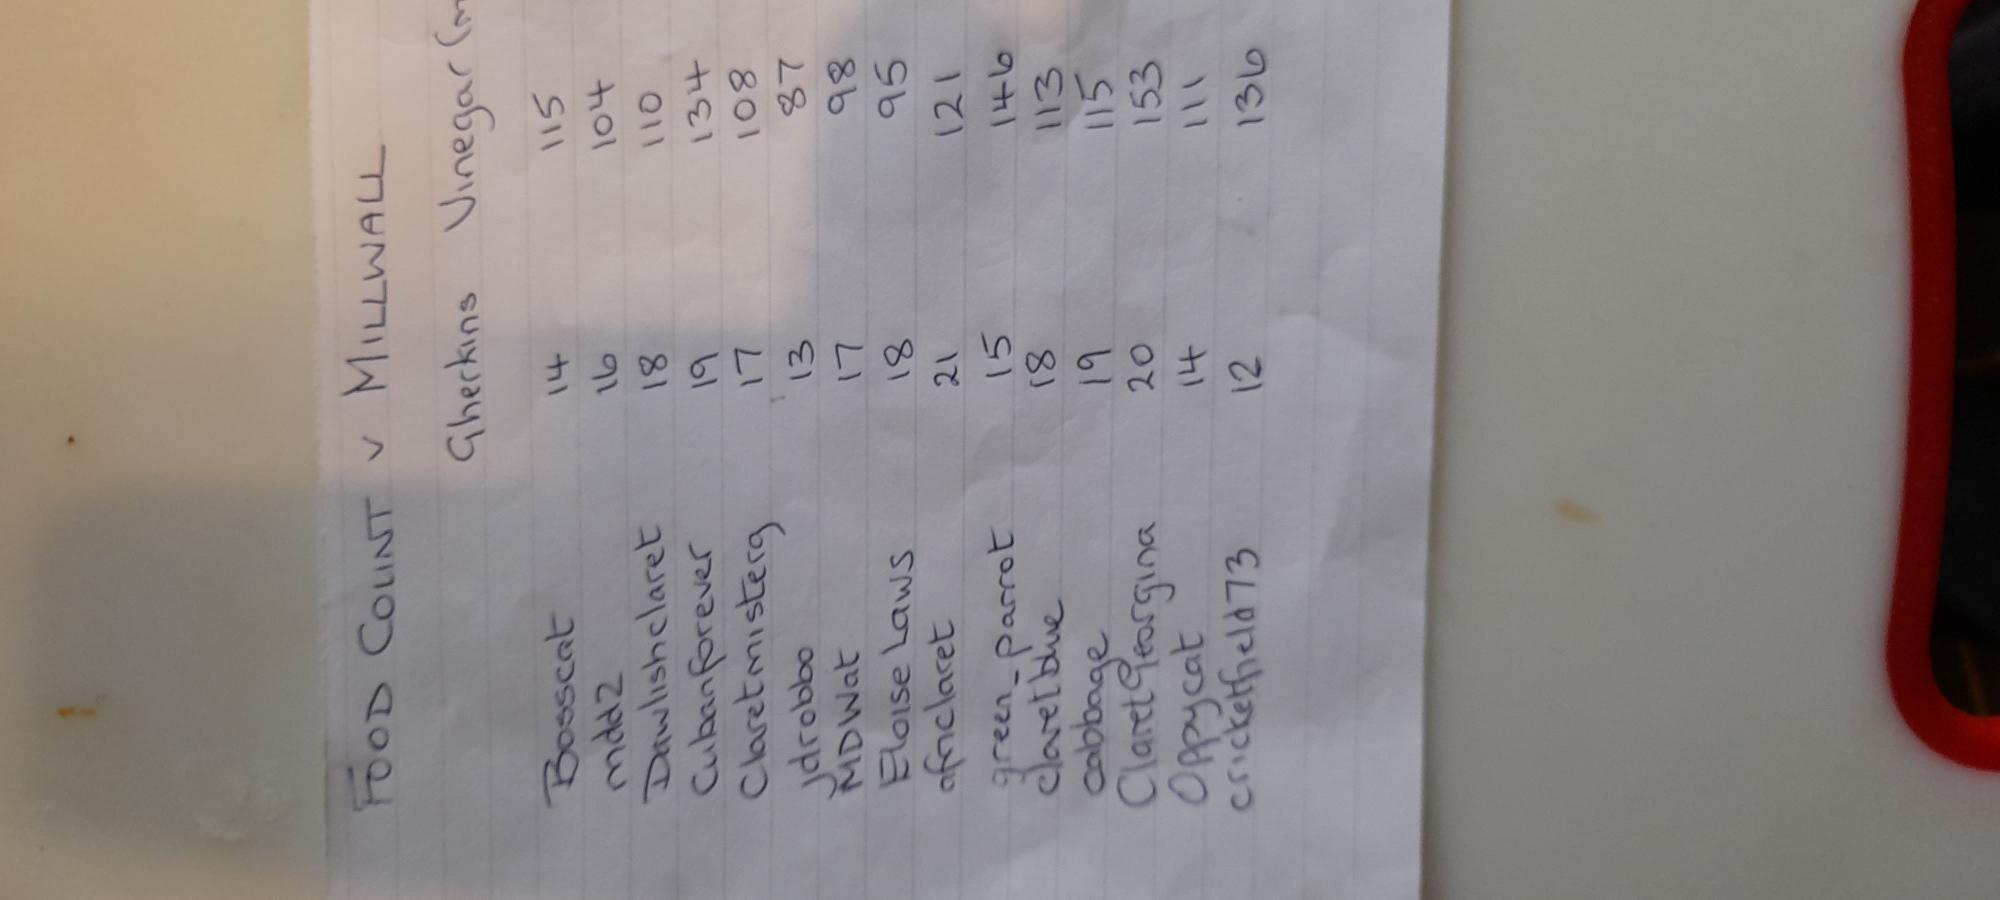 FOOD COUNT v MILLWALL
Gherkins Vinegar (m
Bosscat 14 115
mdd2 16 104
Dawlishclaret 18 110
Cubanforever 19 134
Claretmisterg 17 108
jdrobbo 13 87
MDWat 17 98
Eloise Laws 18 95
africlaret 21 121
green_parrot 15 146
claretblue 18 113
cabbage 19 115
ClaretGeorgina 20 153
Oppycat 14 111
cricketfield73 12 136